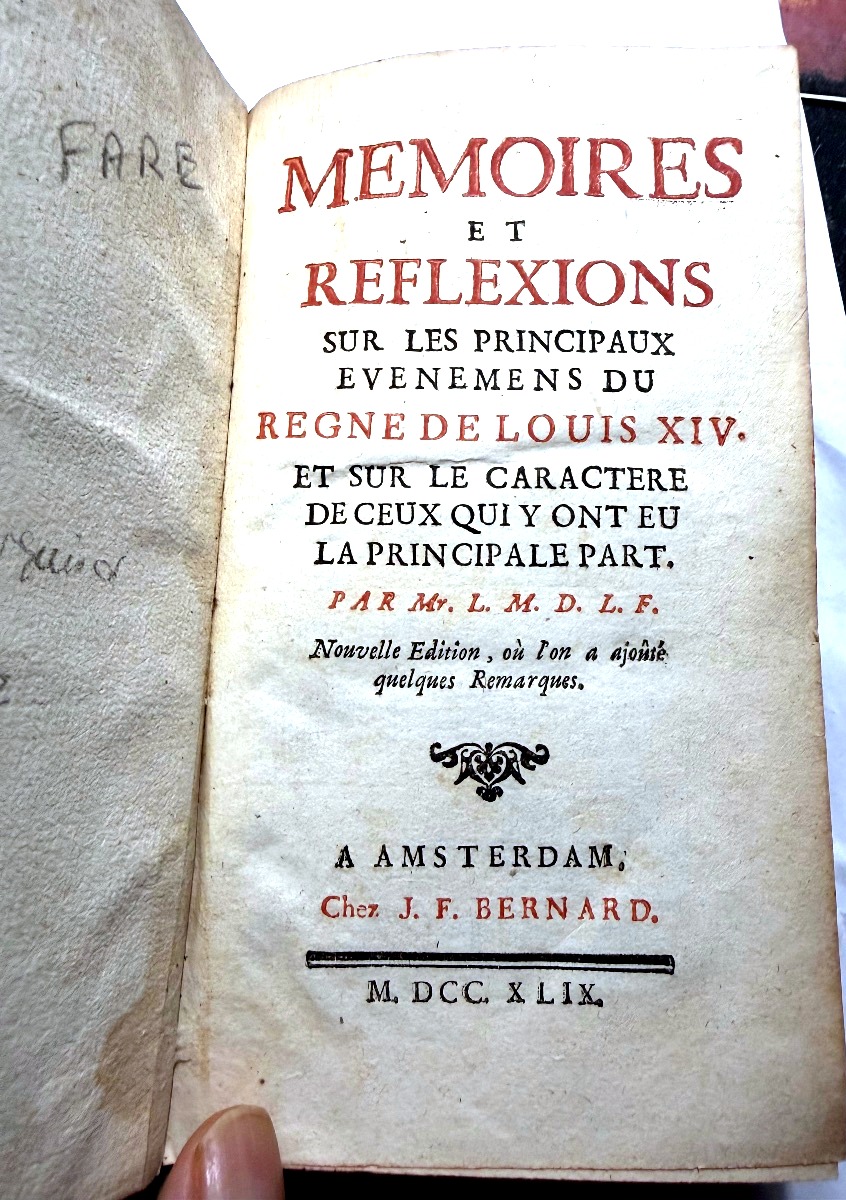 FARE
MEMOIRES
ET
REFLEXIONS
SUR LES PRINCIPAUX
EVENEMENS DU
REGNE DE LOUIS XIV.
ET SUR LE CARACTERE
DE CEUX QUI Y ONT EU
LA PRINCIPALE PART.
PAR Mr. L. M. D. L. F.
Nouvelle Edition, où l'on a ajoûté
quelques Remarques.
A AMSTERDAM,
Chez J. F. BERNARD.
M. DCC. XLIX.